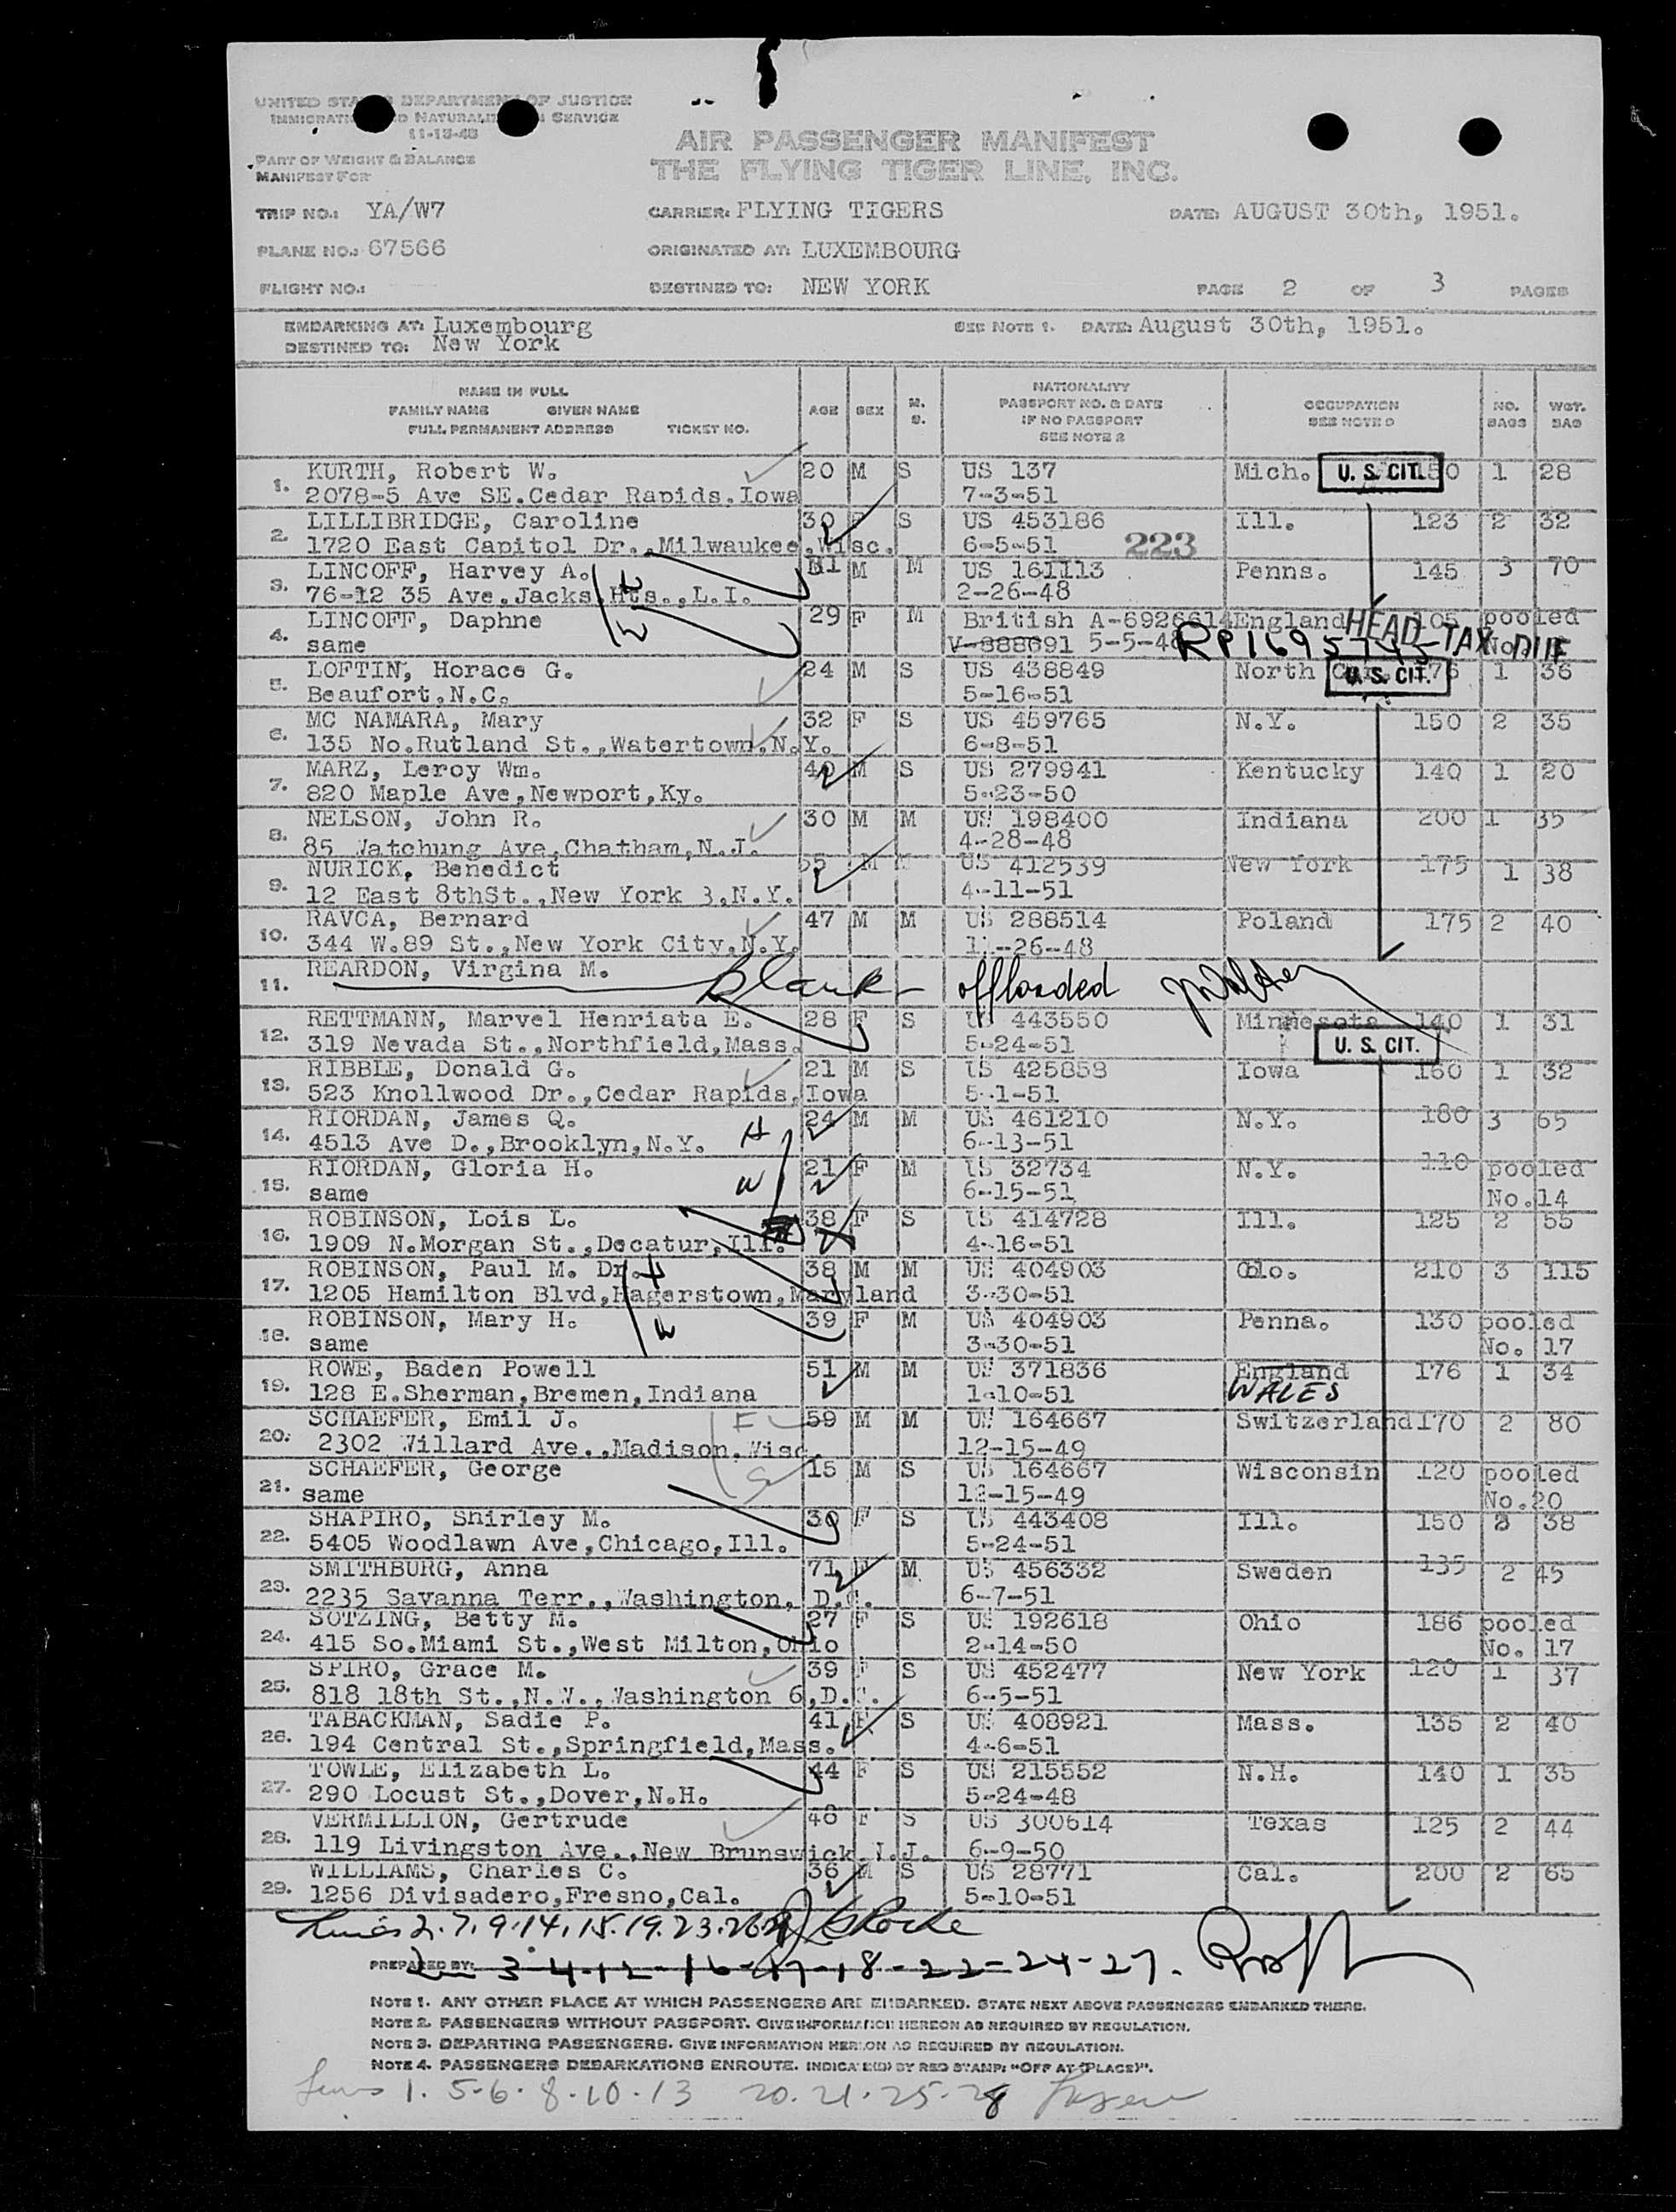 UNITED STATES DEPARTMENT OF JUSTICE
IMMIGRATION AND NATURALIZATION SERVICE
11-18-48
PART OF WEIGHT & BALANCE
MANIFEST FOR
AIR PASSENGER MANIFEST
THE FLYING TIGER LINE, INC.
TRIP NO.: YA/W7 CARRIER: FLYING TIGERS DATE: AUGUST 30th, 1951.
PLANE NO.: 67566 ORIGINATED AT: LUXEMBOURG
FLIGHT NO.: DESTINED TO: NEW YORK PAGE 2 OF 3 PAGES
EMBARKING AT: Luxembourg SEE NOTE 1. DATE: August 30th, 1951.
DESTINED TO: New York
NAME IN FULL
FAMILY NAME GIVEN NAME
FULL PERMANENT ADDRESS TICKET NO.
AGE SEX M. S.
NATIONALITY
PASSPORT NO. & DATE
IF NO PASSPORT
SEE NOTE 2
OCCUPATION
SEE NOTE
NO. BAGS
WGT. BAG
1. KURTH, Robert W. 20 M S US 137 Mich. U. S. CIT. 1 28
2078-5 Ave SE.Cedar Rapids,Iowa 7-3-51
2. LILLIBRIDGE, Caroline 30 F S US 453186 Ill. 123 2 32
1720 East Capitol Dr.,Milwaukee,Wisc. 6-5-51 223
3. LINCOFF, Harvey A. M M US 161113 Penns. 145 3 70
76-12 35 Ave,Jacks.Hts.,L.I. 2-26-48
H
W
4. LINCOFF, Daphne 29 F M British A-6926614 England 105 pooled
same V-888691 5-5-48 RP1695745 HEAD TAX DUE No.
5. LOFTIN, Horace G. 24 M S US 438849 North U. S. CIT. 1 36
Beaufort,N.C. 5-16-51
6. MC NAMARA, Mary 32 F S US 459765 N.Y. 150 2 35
135 No.Rutland St.,Watertown,N.Y. 6-8-51
7. MARZ, Leroy Wm. 40 M S US 279941 Kentucky 140 1 20
820 Maple Ave,Newport,Ky. 5-23-50
8. NELSON, John R. 30 M M US 198400 Indiana 200 1 35
85 Watchung Ave,Chatham,N.J. 4-28-48
9. NURICK, Benedict 55 M US 412539 New York 175 1 38
12 East 8thSt.,New York 3,N.Y. 4-11-51
10. RAVCA, Bernard 47 M M US 288514 Poland 175 2 40
344 W.89 St.,New York City,N.Y. 11-26-48
11. REARDON, Virgina M. blank offloaded
12. RETTMANN, Marvel Henriata E. 28 F S US 443550 Minnesota 140 1 31
319 Nevada St.,Northfield,Mass. 5-24-51 U. S. CIT.
13. RIBBLE, Donald G. 21 M S US 425858 Iowa 160 1 32
523 Knollwood Dr.,Cedar Rapids,Iowa 5-1-51
14. RIORDAN, James Q. 24 M M US 461210 N.Y. 180 3 65
4513 Ave D.,Brooklyn,N.Y. H 6-13-51
15. RIORDAN, Gloria H. 21 F M US 32734 N.Y. 110 pooled
same W 6-15-51 No.14
16. ROBINSON, Lois L. 38 F S US 414728 Ill. 125 2 55
1909 N.Morgan St.,Decatur,Ill. 4-16-51
17. ROBINSON, Paul M. Dr. H 38 M M US 404903 210 3 115
1205 Hamilton Blvd,Hagerstown,Maryland 3-30-51
18. ROBINSON, Mary H. W 39 F M US 404903 Penna. 130 pooled
same 3-30-51 No. 17
19. ROWE, Baden Powell 51 M M US 371836 England 176 1 34
128 E.Sherman,Bremen,Indiana 1-10-51 WALES
20. SCHAEFER, Emil J. F 59 M M US 164667 Switzerland 170 2 80
2302 Willard Ave.,Madison,Wisc. 12-15-49
21. SCHAEFER, George S 15 M S US 164667 Wisconsin 120 pooled
same 12-15-49 No.20
22. SHAPIRO, Shirley M. 30 F S US 443408 Ill. 150 38
5405 Woodlawn Ave,Chicago,Ill. 5-24-51
23. SMITHBURG, Anna 71 F M US 456332 Sweden 135 2 45
2235 Savanna Terr.,Washington, D.C. 6-7-51
24. SOTZING, Betty M. 27 F S US 192618 Ohio 186 pooled
415 So.Miami St.,West Milton,Ohio 2-14-50 No. 17
25. SPIRO, Grace M. 39 F S US 452477 New York 120 1 37
818 18th St.,N.W.,Washington 6,D.C. 6-5-51
26. TABACKMAN, Sadie P. 41 F S US 408921 Mass. 135 2 40
194 Central St.,Springfield,Mass. 4-6-51
27. TOWLE, Elizabeth L. 44 F S US 215552 N.H. 140 1 35
290 Locust St.,Dover,N.H. 5-24-48
28. VERMILLION, Gertrude 48 F S US 300614 Texas 125 2 44
119 Livingston Ave.,New Brunswick,N.J. 6-9-50
29. WILLIAMS, Charles C. 36 M S US 28771 Cal. 200 2 65
1256 Divisadero,Fresno,Cal. 5-10-51
Lines 2.7.9.14.15.19.23.26.29
PREPARED BY: 3-4-12-16-17-18-22-24-27.
NOTE 1. ANY OTHER PLACE AT WHICH PASSENGERS ARE EMBARKED. STATE NEXT ABOVE PASSENGERS EMBARKED THERE.
NOTE 2. PASSENGERS WITHOUT PASSPORT. GIVE INFORMATION HEREON AS REQUIRED BY REGULATION.
NOTE 3. DEPARTING PASSENGERS. GIVE INFORMATION HEREON AS REQUIRED BY REGULATION.
NOTE 4. PASSENGERS DEBARKATIONS ENROUTE. INDICATE(D) BY RED STAMP: "OFF AT (PLACE)".
Lines 1. 5-6. 8-10-13 20.21.25-28